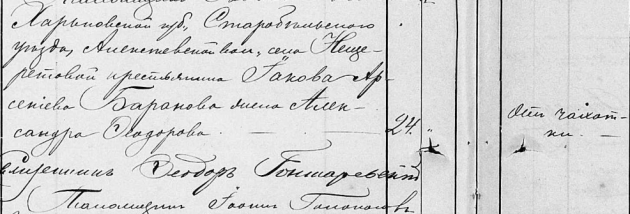 Харьковской губ, Старобѣльскаго
уѣзда, Алексѣевской вол, села Неще-
ретовой крестьянина Іакова Ар-
сеніева Баранова жена Алек-
сандра Ѳеодорова. 24. отъ чахот-
ки.
Священникъ Ѳеодоръ Гонтаревскій
Псаломщикъ Іоаннъ